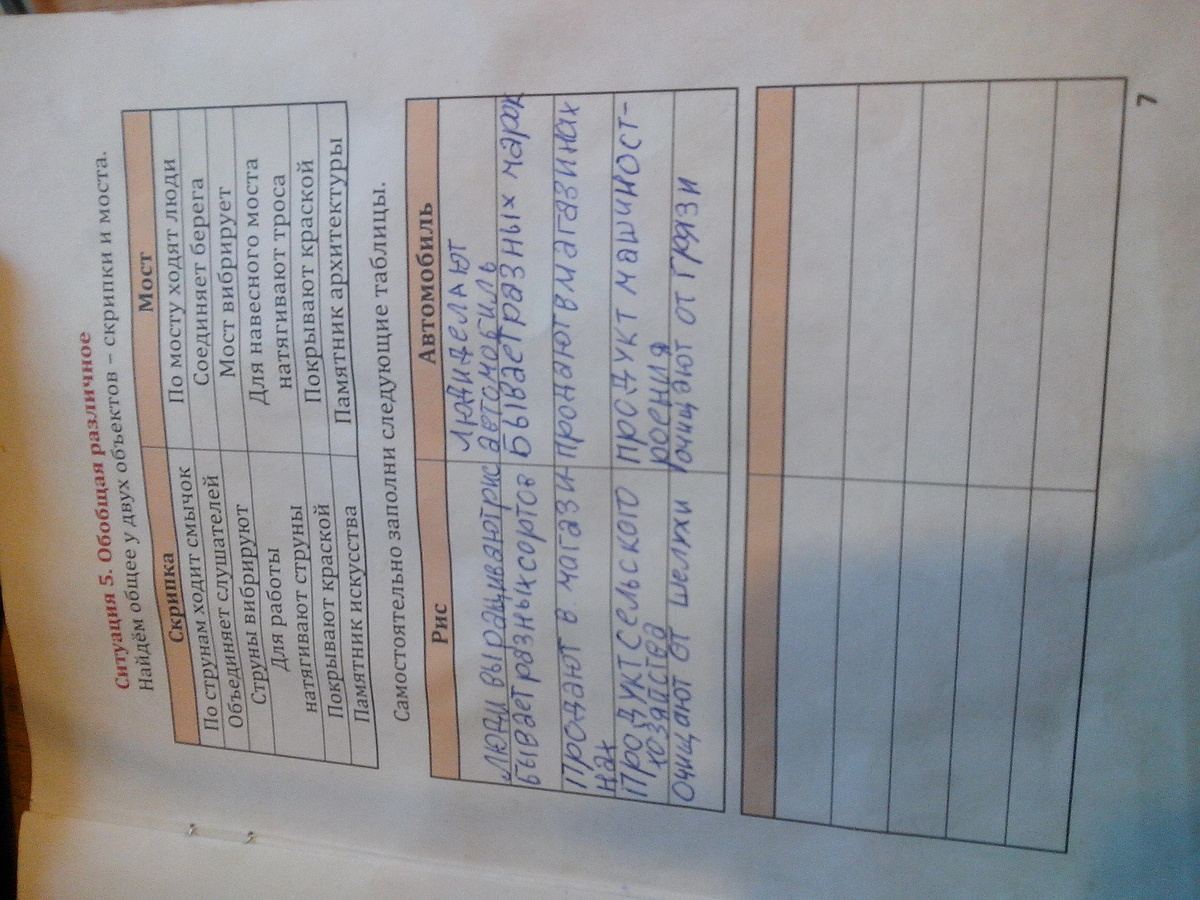 Ситуация 5. Обобщая различное
Найдём общее у двух объектов – скрипки и моста.
Скрипка
Мост
По струнам ходит смычок
По мосту ходят люди
Объединяет слушателей
Соединяет берега
Струны вибрируют
Мост вибрирует
Для работы
натягивают струны
Для навесного моста
натягивают троса
Покрывают краской
Покрывают краской
Памятник искусства
Памятник архитектуры
Самостоятельно заполни следующие таблицы.
Рис
Автомобиль
Люди выращивают рис
Люди делают
автомобиль
Бывает разных сортов
Бывает разных марок
Продают в магази-
нах
продают в магазинах
Продукт сельского
хозяйства
продукт машиност-
роения
Очищают от шелухи
очищают от грязи
7